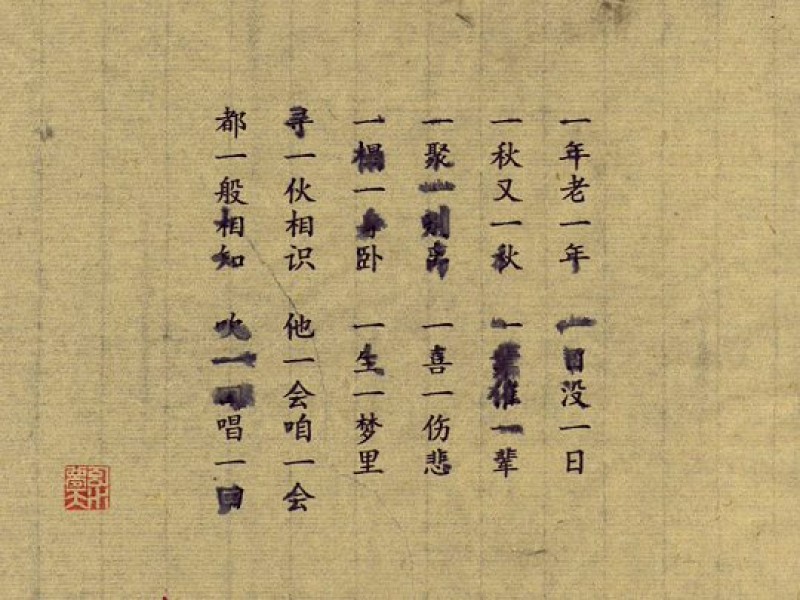 一年老一年 一日没一日
一秋又一秋 一催一辈
一聚一别离 一喜一伤悲
一榻一身卧 一生一梦里
寻一伙相识 他一会咱一会
都一般相知 吹一唱一回